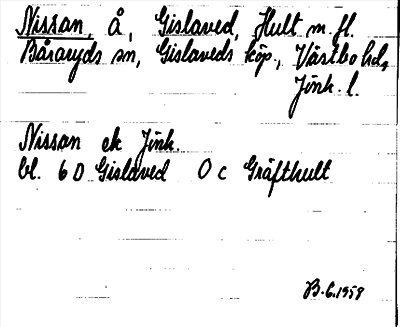 Nissan, å, Gislaved, Hult m.fl.
Båraryds sn, Gislaveds köp., Västbo hd,
Jönk. l.
Nissan ek Jönk.
bl. 6 D Gislaved 0 c Gräfthult
B.G.1958